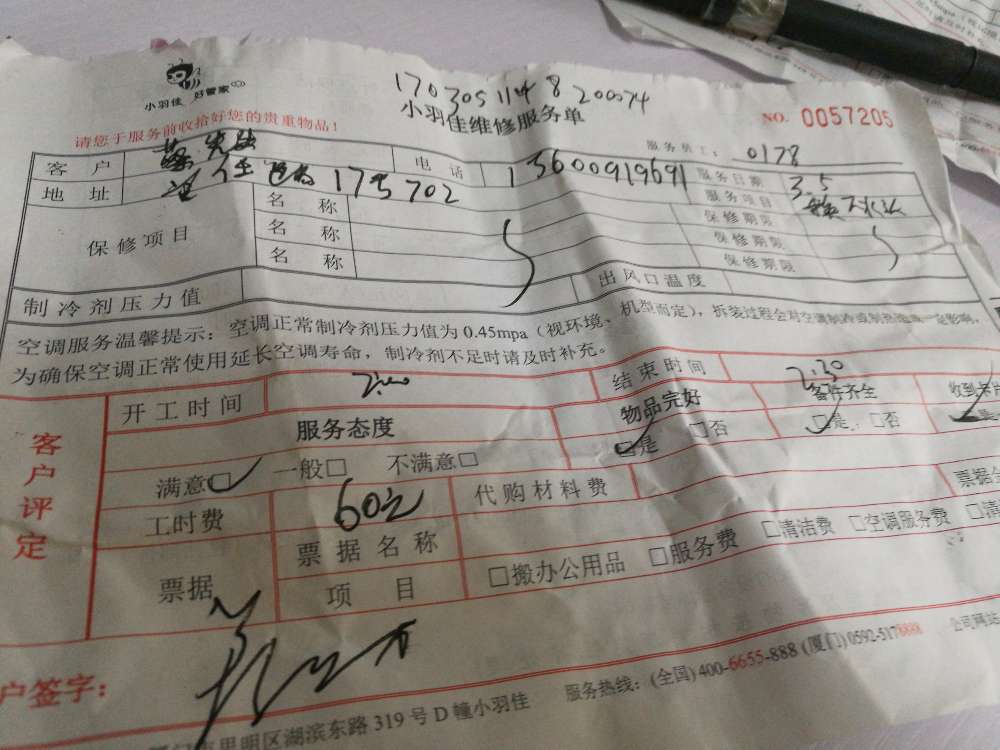 小羽佳 好管家
1703051148200074
小羽佳维修服务单
NO. 0057205
请您于服务前收拾好您的贵重物品！
服务员工： 0178
客户 电话 13600919691 服务日期 3.5
地址 175702 服务项目
保修项目 名称 保修期限
名称 保修期限
名称 保修期限
制冷剂压力值 出风口温度
空调服务温馨提示：空调正常制冷剂压力值为 0.45mpa（视环境、机型而定），拆装过程会对空调制冷或制热造成一定影响，
为确保空调正常使用延长空调寿命，制冷剂不足时请及时补充。
客户评定
开工时间 2:00 结束时间 2:30
服务态度 物品完好 备件齐全 收到卡片
满意□ 一般□ 不满意□ □是 □否 □是 □否
工时费 60元 代购材料费
票据 票据名称 票据
项目 □搬办公用品 □服务费 □清洁费 □空调服务费 □清
户签字：
明区湖滨东路 319 号 D 幢小羽佳 服务热线：(全国) 400-6655-888 (厦门) 0592-5178888 公司网站